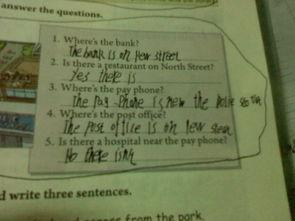 answer the questions.
1. Where's the bank?
The bank is on New street
2. Is there a restaurant on North Street?
Yes there is
3. Where's the pay phone?
The pay phone is new the
4. Where's the post office?
The post office is on New
5. Is there a hospital near the pay phone?
No there isn't
d write three sentences.
across from the park.